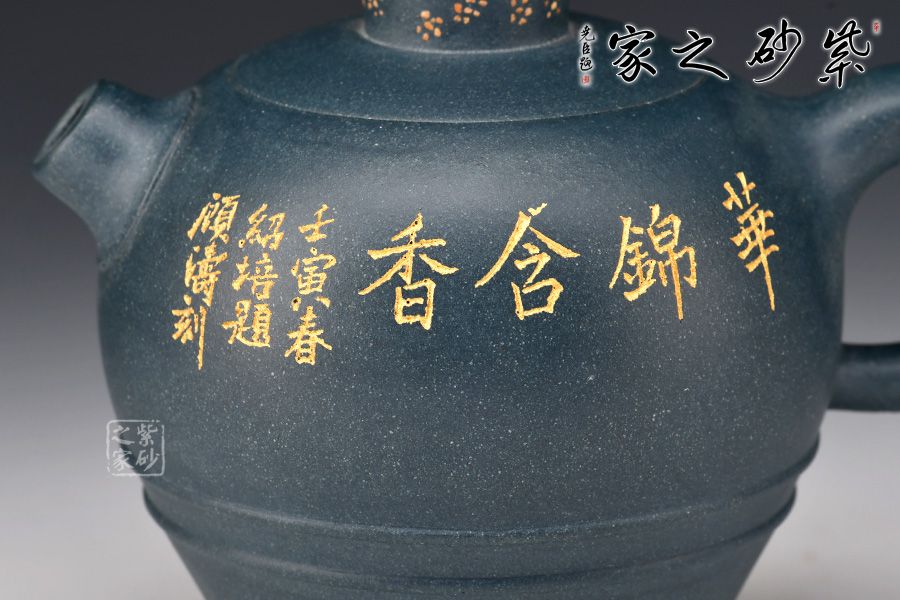 紫砂之家
堯臣題
華錦含香
壬寅春
紹培題
顧濤刻
紫砂之家